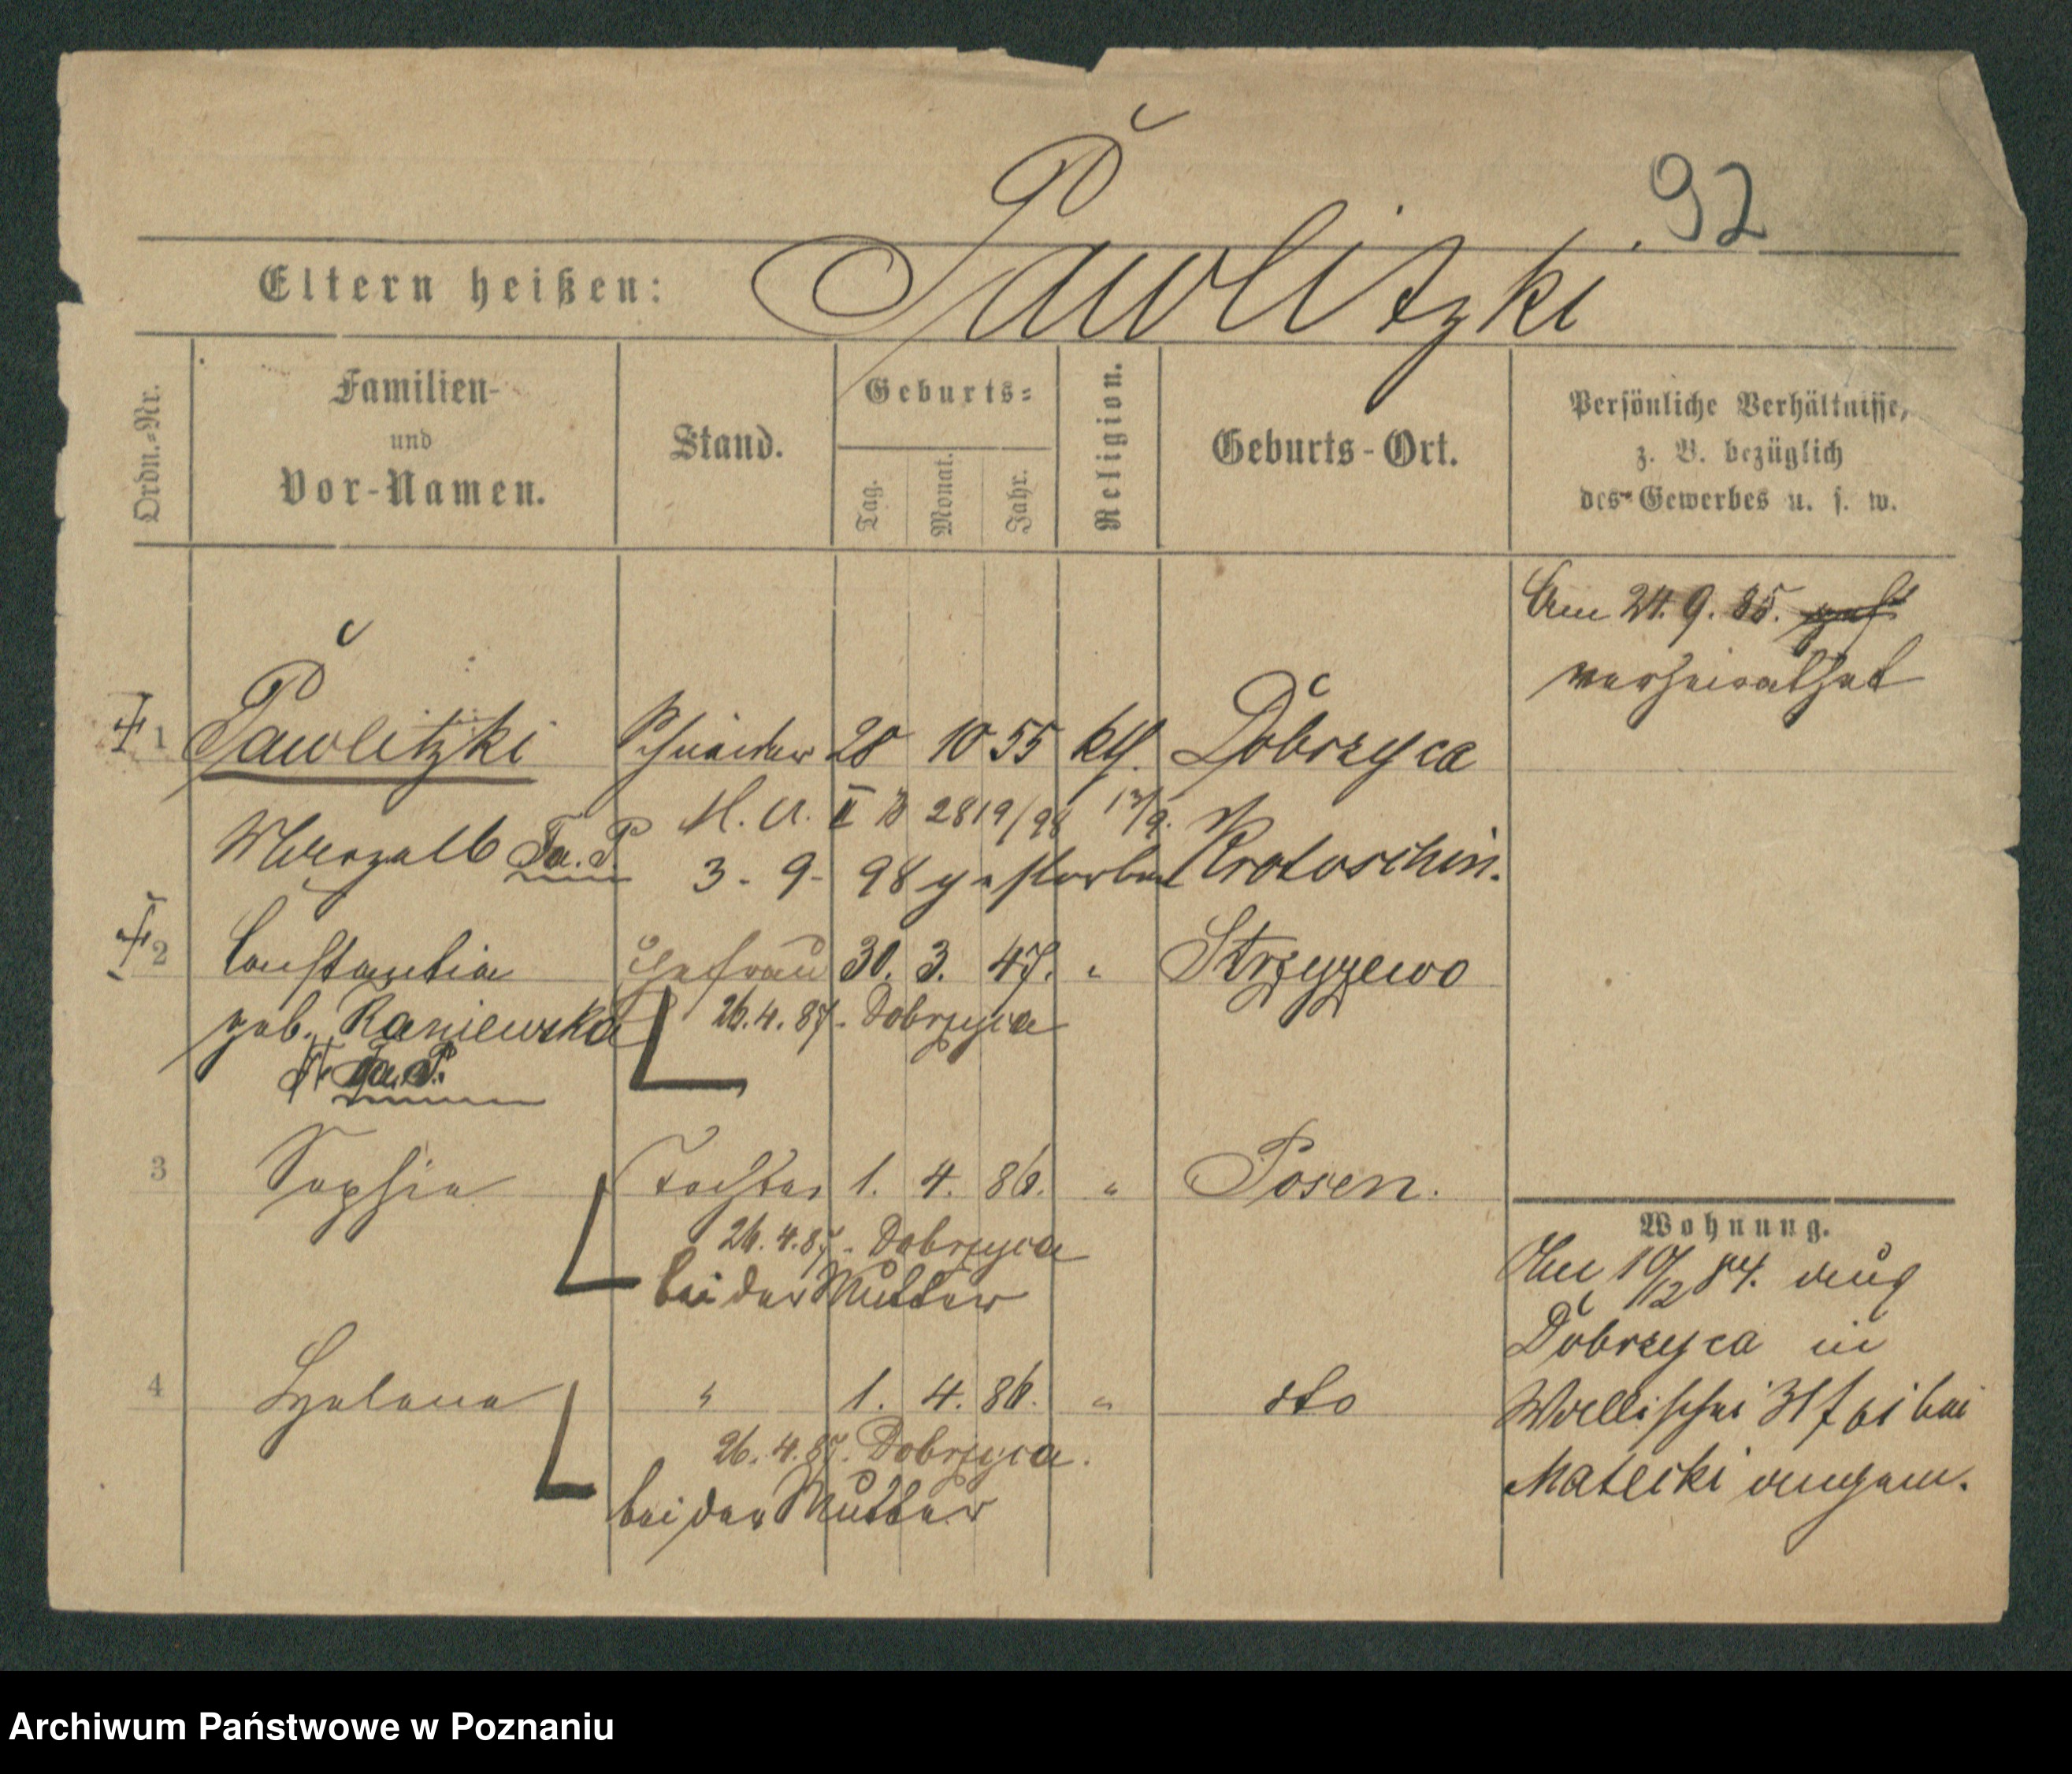 92
Eltern heißen: Pawlitzki
Ordn.-Nr.
Familien-
und
Vor-Namen.
Stand.
Geburts-
Tag.
Monat.
Jahr.
Religion.
Geburts-Ort.
Persönliche Verhältnisse,
z. B. bezüglich
des Gewerbes u. s. w.
Am 24. 9. 85.
verheirathet
1 Pawlitzki Schneider 28 10 55 kth. Dobrzyca
M. A. II B 2819/98 13/9. Krotoschin.
3. 9. 98 gestorben
2 Constantia Ehefrau 30. 3. 47. " Strzyzewo
geb. Raniewska 26. 4. 87. Dobrzyca
3 Sophia Tochter 1. 4. 86. " Posen.
26. 4. 87. Dobrzyca
bei der Mutter
4 Helena " 1. 4. 86. " dto
26. 4. 87. Dobrzyca.
bei der Mutter
Wohnung.
Am 10/12 84. aus
Dobrzyca in
Wallischei bei
Matecki angem.
Archiwum Państwowe w Poznaniu